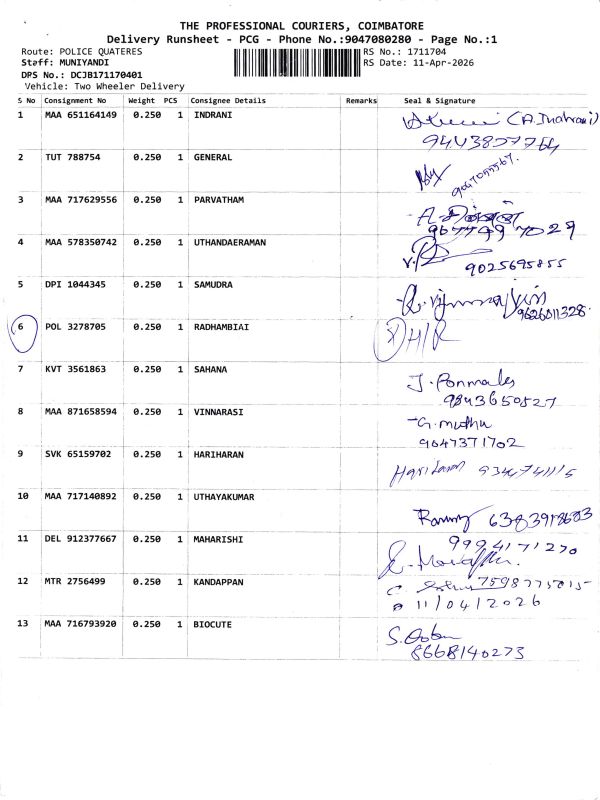 THE PROFESSIONAL COURIERS, COIMBATORE
Delivery Runsheet - PCG - Phone No.:9047080280 - Page No.:1
Route: POLICE QUATERES RS No.: 1711704
Staff: MUNIYANDI RS Date: 11-Apr-2026
DPS No.: DCJB171170401
Vehicle: Two Wheeler Delivery
S No Consignment No Weight PCS Consignee Details Remarks Seal & Signature
1 MAA 651164149 0.250 1 INDRANI
2 TUT 788754 0.250 1 GENERAL
9047055567.
3 MAA 717629556 0.250 1 PARVATHAM
4 MAA 578350742 0.250 1 UTHANDAERAMAN
9025695855
5 DPI 1044345 0.250 1 SAMUDRA
9626011328
6 POL 3278705 0.250 1 RADHAMBIAI
7 KVT 3561863 0.250 1 SAHANA J. Ponmales
9843650527
8 MAA 871658594 0.250 1 VINNARASI G. muthu
9047371702
9 SVK 65159702 0.250 1 HARIHARAN
10 MAA 717140892 0.250 1 UTHAYAKUMAR
11 DEL 912377667 0.250 1 MAHARISHI 9994171270
12 MTR 2756499 0.250 1 KANDAPPAN
11/04/2026
13 MAA 716793920 0.250 1 BIOCUTE
8668140273